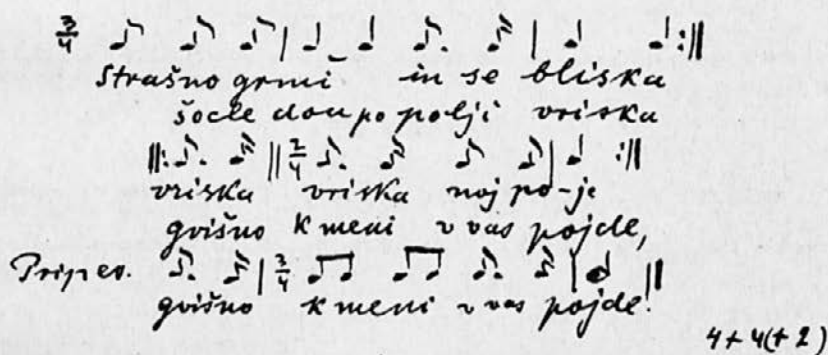 3/4
Strašno grmi in se bliska
šocle dou po polji vriska
2/4
vriska vriska noj po-je
gvišno k meni v vas pojde,
Pripev. 3/4
gvišno k meni v vas pojde!
4+4(+2)